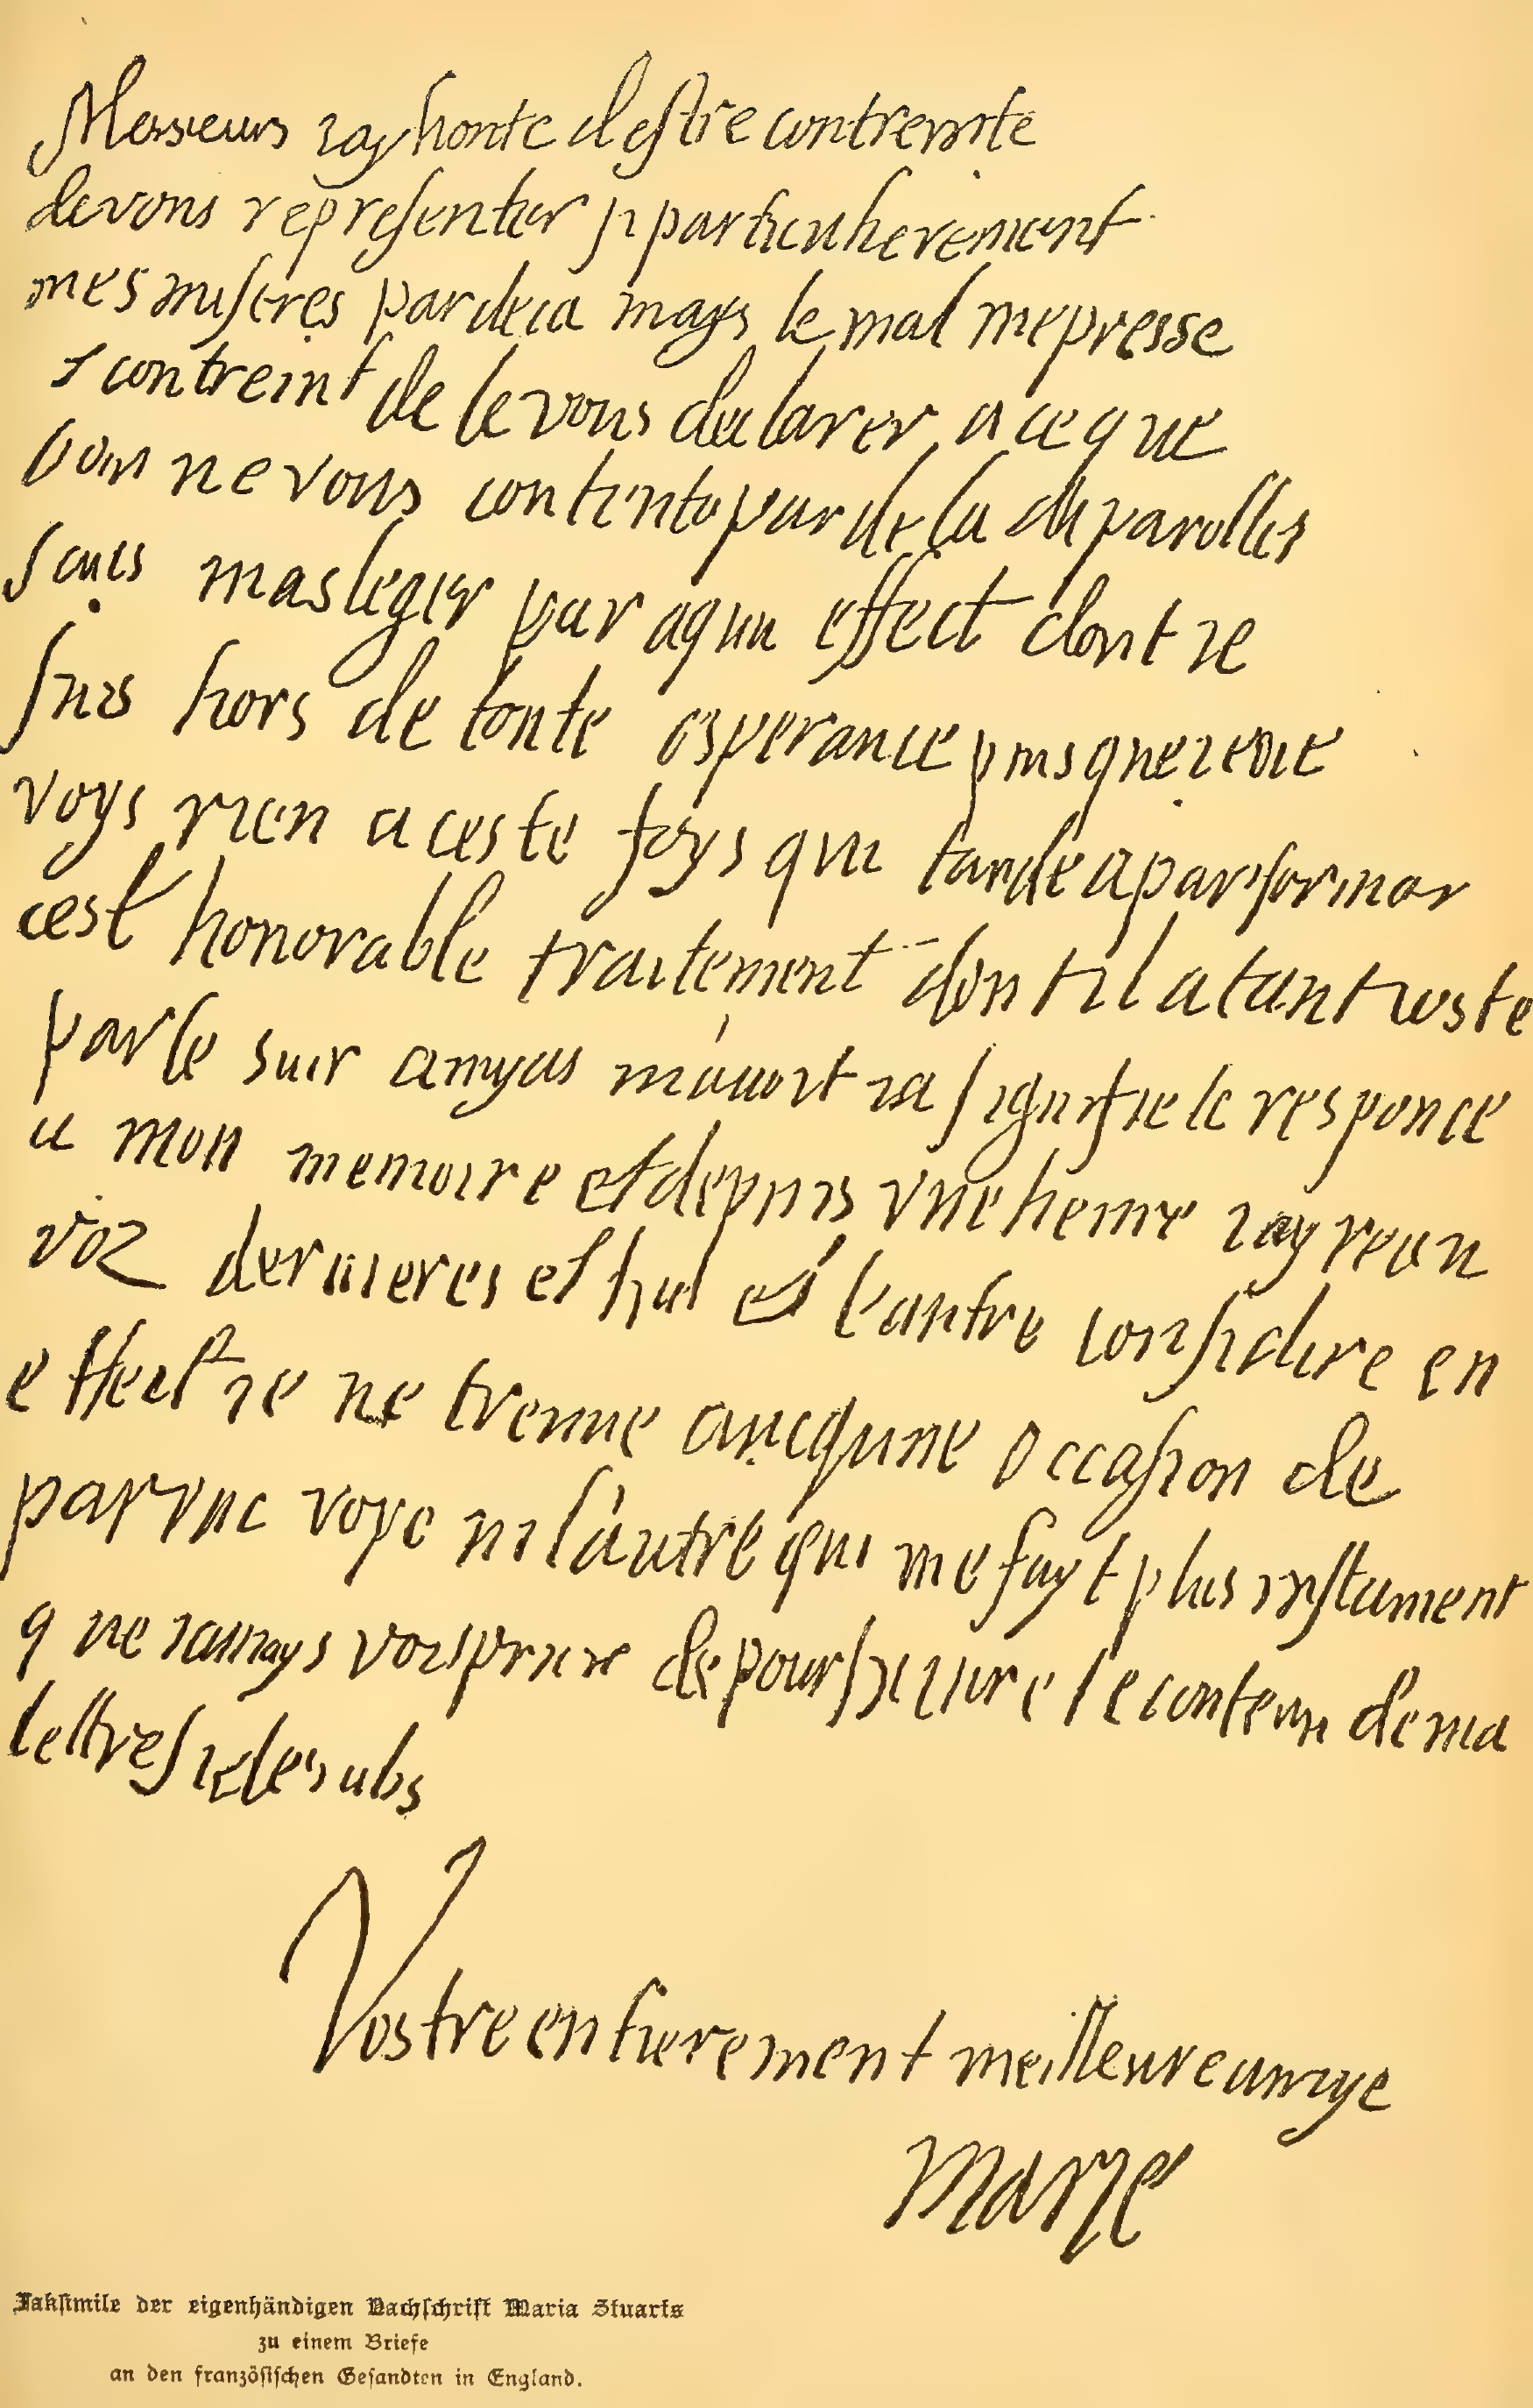 Messieurs iay honte destre contreinte
de vous representer si particulierement
mes miseres par deca mays le mal me presse
contreint de le vous declarer a ce que
lon ne vous contente par de la de parolles
sans masleger par aqun effect dont ie
suis hors de toute esperance puisque ie ne
voys rien a ceste foys qui tande a parformer
cest honorable traitement dont il a tant
par le sieur amyas m'auoit ia signifie le responce
a mon memoire et depuis une heure iay receu
voz dernieres et l'autre considere en
effect ie ne treuue aucqune occasion de
par une voye ni l'autre qui me fayt plus instament
que iamays vous prier de poursuiure le contenu de ma
lettre
Vostre entierement meilleure amye
Marye
Faksimile der eigenhändigen Nachschrift Maria Stuarts
zu einem Briefe
an den französischen Gesandten in England.